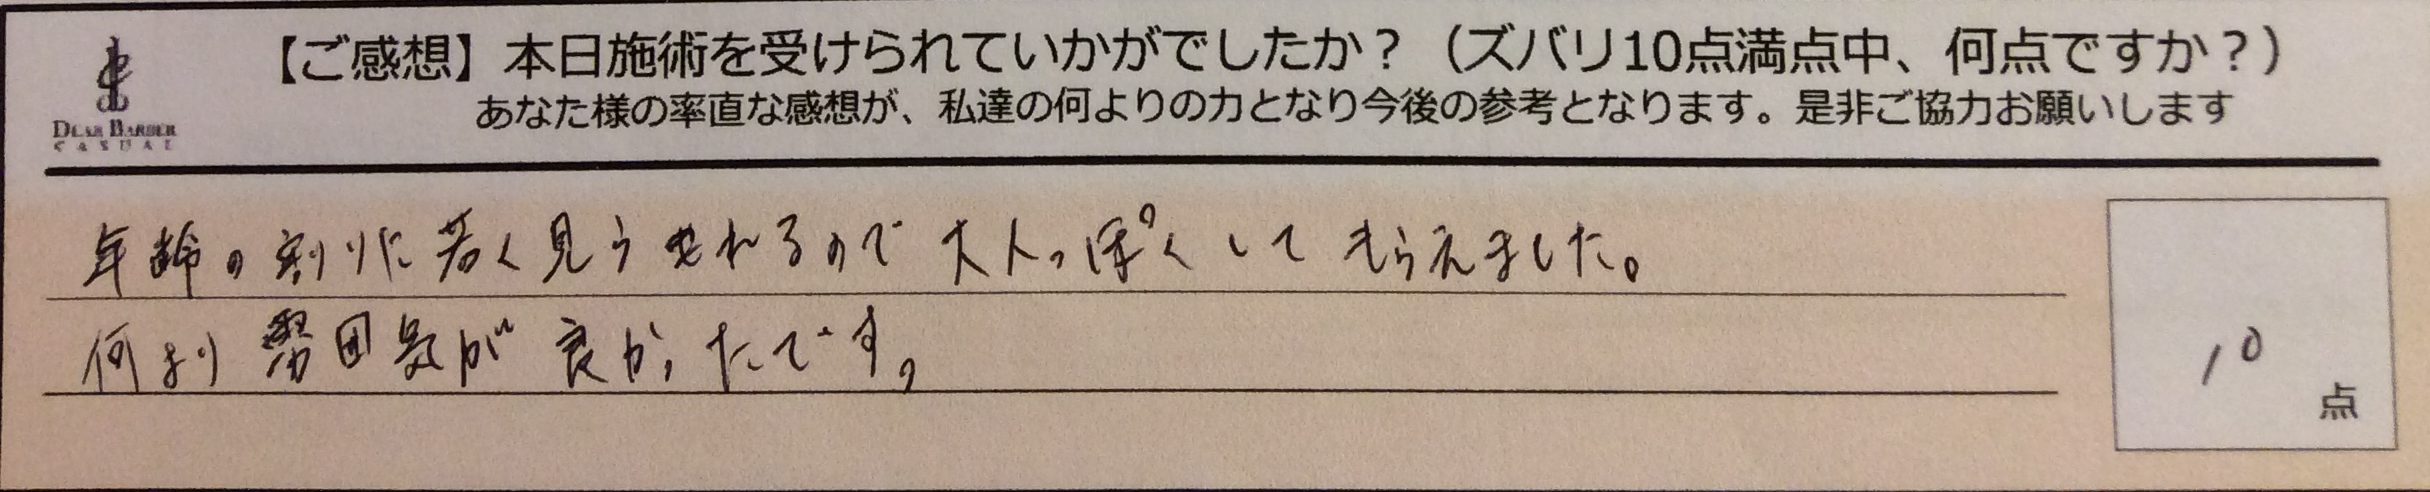 【ご感想】本日施術を受けられていかがでしたか？（ズバリ10点満点中、何点ですか？）
あなた様の率直な感想が、私達の何よりの力となり今後の参考となります。是非ご協力お願いします
DEAR BARBER
CASUAL
年齢の割りに若く見うせれるので大人っぽくしてもらえました。
何より雰囲気が良かったです。
10
点